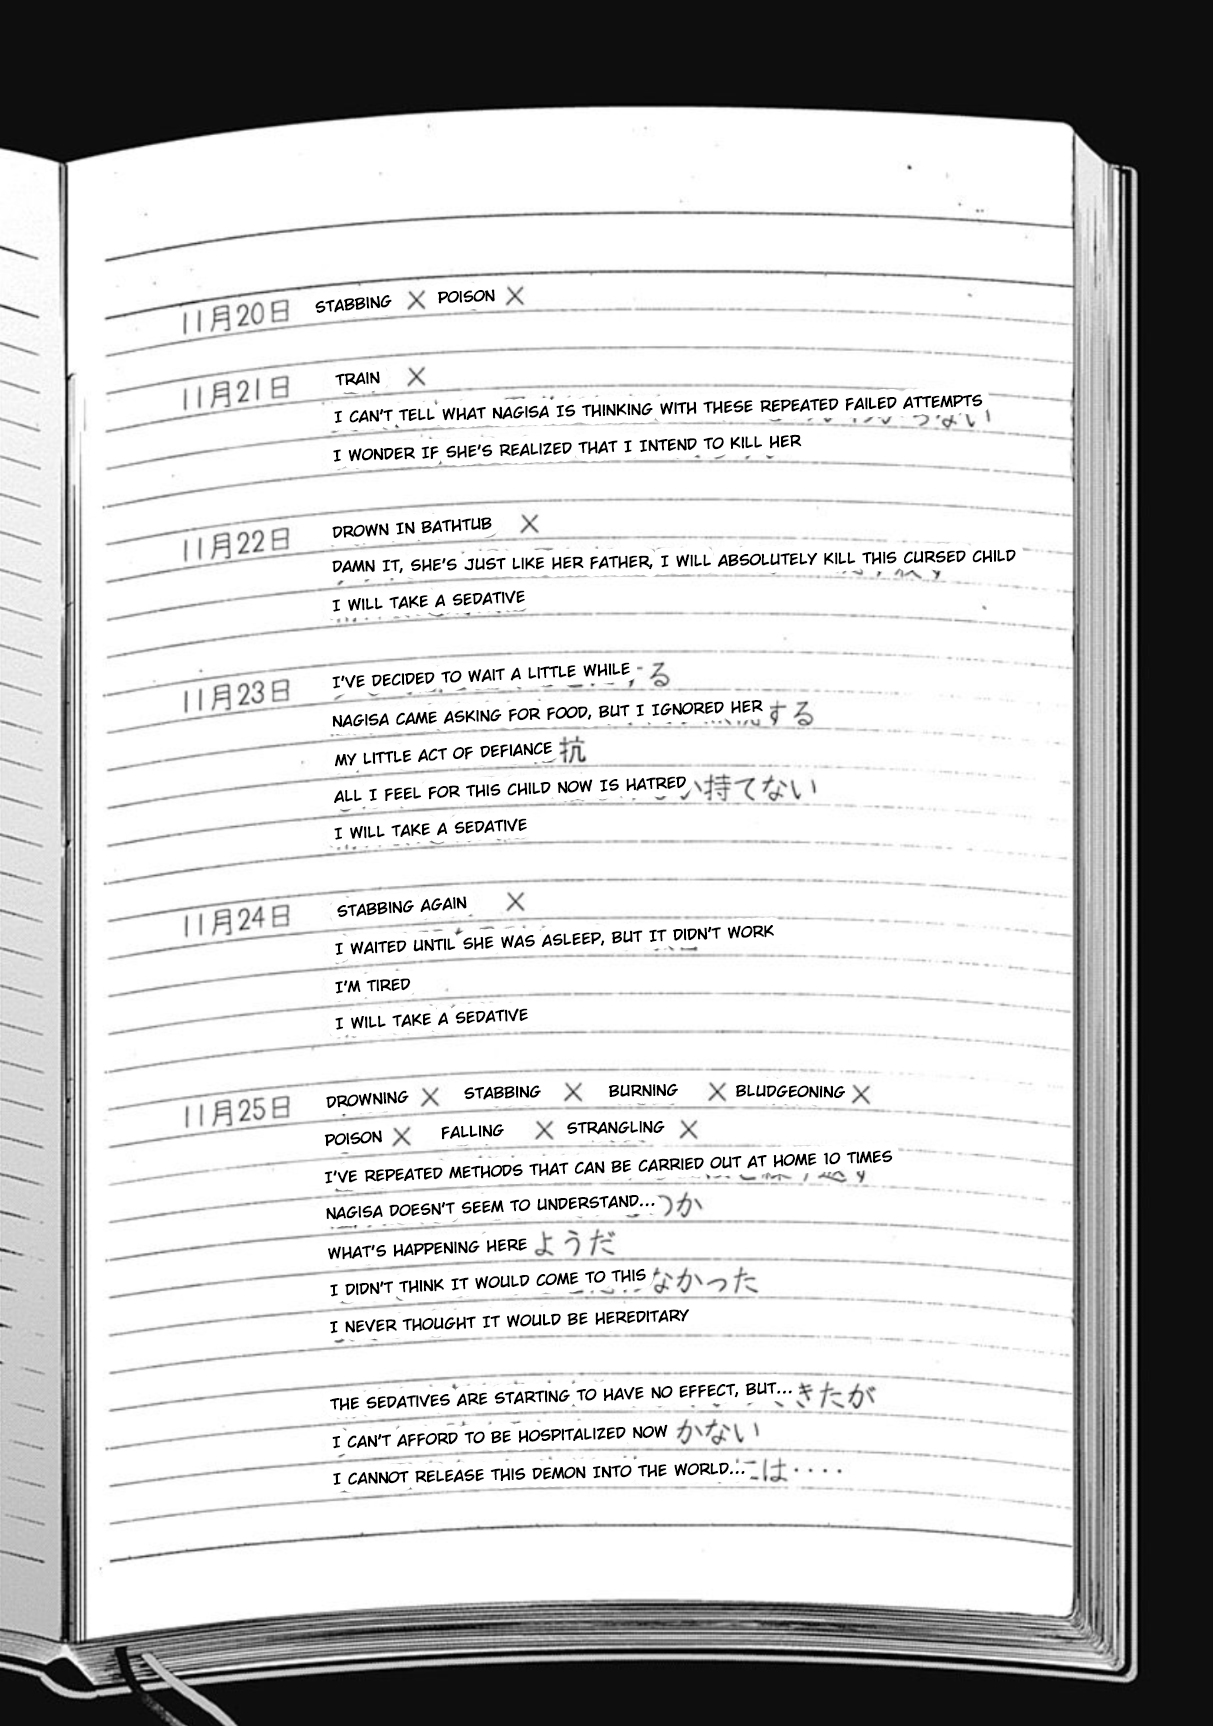 11月20日 STABBING X POISON X
11月21日 TRAIN X
I CAN'T TELL WHAT NAGISA IS THINKING WITH THESE REPEATED FAILED ATTEMPTS
I WONDER IF SHE'S REALIZED THAT I INTEND TO KILL HER
11月22日 DROWN IN BATHTUB X
DAMN IT, SHE'S JUST LIKE HER FATHER, I WILL ABSOLUTELY KILL THIS CURSED CHILD
I WILL TAKE A SEDATIVE
11月23日 I'VE DECIDED TO WAIT A LITTLE WHILE る
NAGISA CAME ASKING FOR FOOD, BUT I IGNORED HER する
MY LITTLE ACT OF DEFIANCE 抗
ALL I FEEL FOR THIS CHILD NOW IS HATRED い持てない
I WILL TAKE A SEDATIVE
11月24日 STABBING AGAIN X
I WAITED UNTIL SHE WAS ASLEEP, BUT IT DIDN'T WORK
I'M TIRED
I WILL TAKE A SEDATIVE
11月25日 DROWNING X STABBING X BURNING X BLUDGEONING X
POISON X FALLING X STRANGLING X
I'VE REPEATED METHODS THAT CAN BE CARRIED OUT AT HOME 10 TIMES
NAGISA DOESN'T SEEM TO UNDERSTAND... うか
WHAT'S HAPPENING HERE ようだ
I DIDN'T THINK IT WOULD COME TO THIS なかった
I NEVER THOUGHT IT WOULD BE HEREDITARY
THE SEDATIVES ARE STARTING TO HAVE NO EFFECT, BUT... きたが
I CAN'T AFFORD TO BE HOSPITALIZED NOW かない
I CANNOT RELEASE THIS DEMON INTO THE WORLD... には····